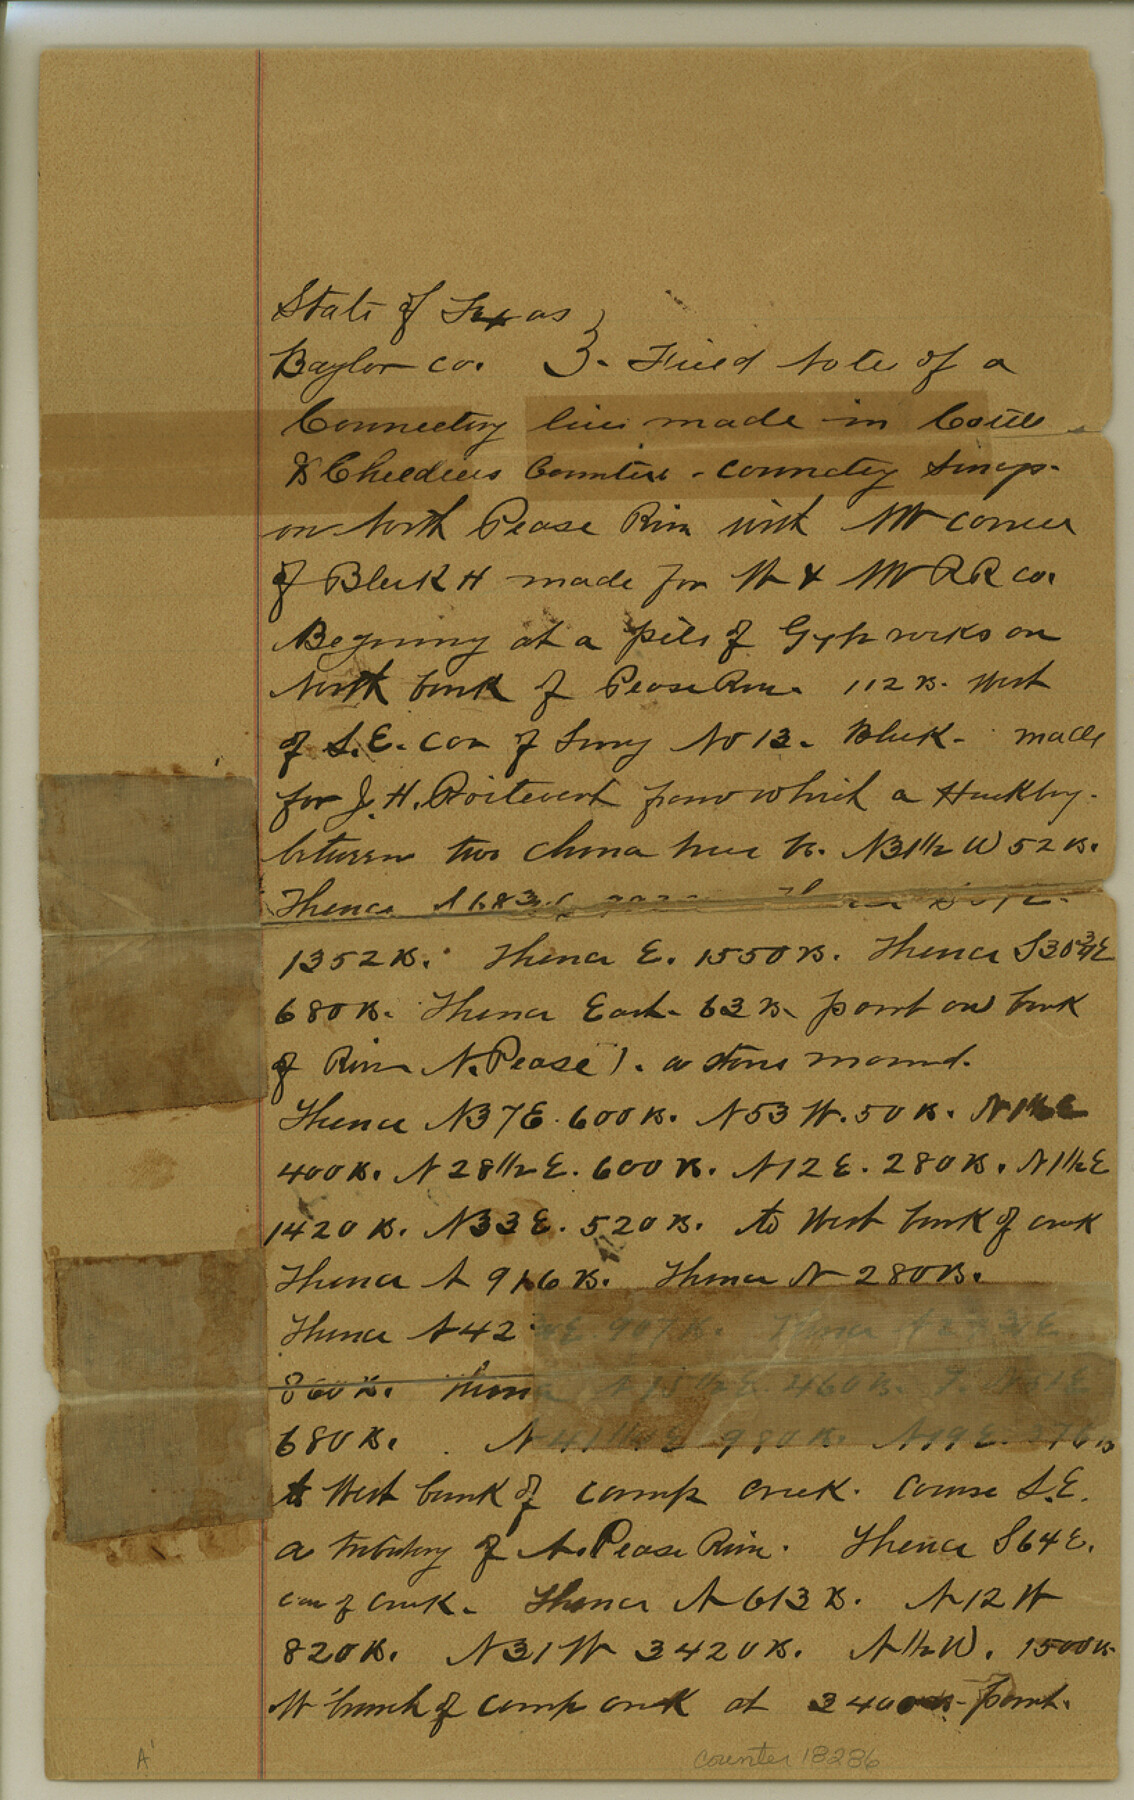 State of Texas
Baylor Co. } Field Note of a
Connecting line made in Cottle
& Childress Counties - connecting Survys-
on North Pease River with NW corner
of Block H made for W & NW RR Co.
Beginning at a pile of Gyp rocks on
North bank of Pease River 112 vs. West
of S.E. Cor of Survy No 13. Block - made
for J. H. Poitevent from which a Hackbery
between two China trees brs. N31½ W 52 vs.
Thence
1352 vs. Thence E. 1550 vs. Thence S30¾E
680 vs. Thence East. 63 vs. point on bank
of River N. Pease ). a stone mound.
Thence N37E 600 vs. N53 W. 50 vs.
400 vs. N28½E. 600 vs. N12E. 280 vs. N1½E
1420 vs. N33E. 520 vs. to West bank of creek
Thence N 916 vs. Thence N 280 vs.
Thence N42 E 907 vs. Thence N
860 vs. Thence N E 460 vs.
680 vs. N41½E 980 vs. N19E. 376 vs
to West bank of Camp Creek. Course S.E.
a tributary of N. Pease River. Thence S64E.
of creek. Thence N 613 vs. N12W
820 vs. N31W 3420 vs. N1½W. 1500 vs
W branch of camp creek at 3400 vs- point.
A'
counter 18286